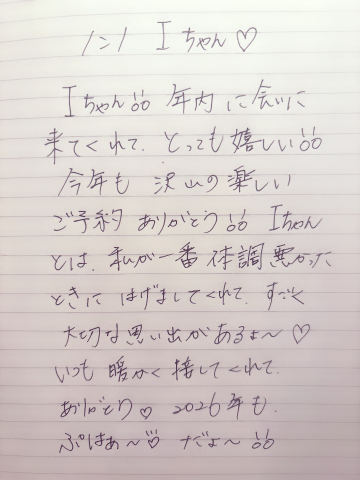 ノンノ Iちゃん♡
Iちゃん 年内に会いに
来てくれて、とっても嬉しい
今年も 沢山の楽しい
ご予約 ありがとう Iちゃん
とは、私が一番 体調悪かった
ときに はげましてくれて、すごく
大切な思い出があるよ〜♡
いつも 暖かく接してくれて、
ありがとう♡ 2026年も、
ぷはぁ〜♡ だよ〜